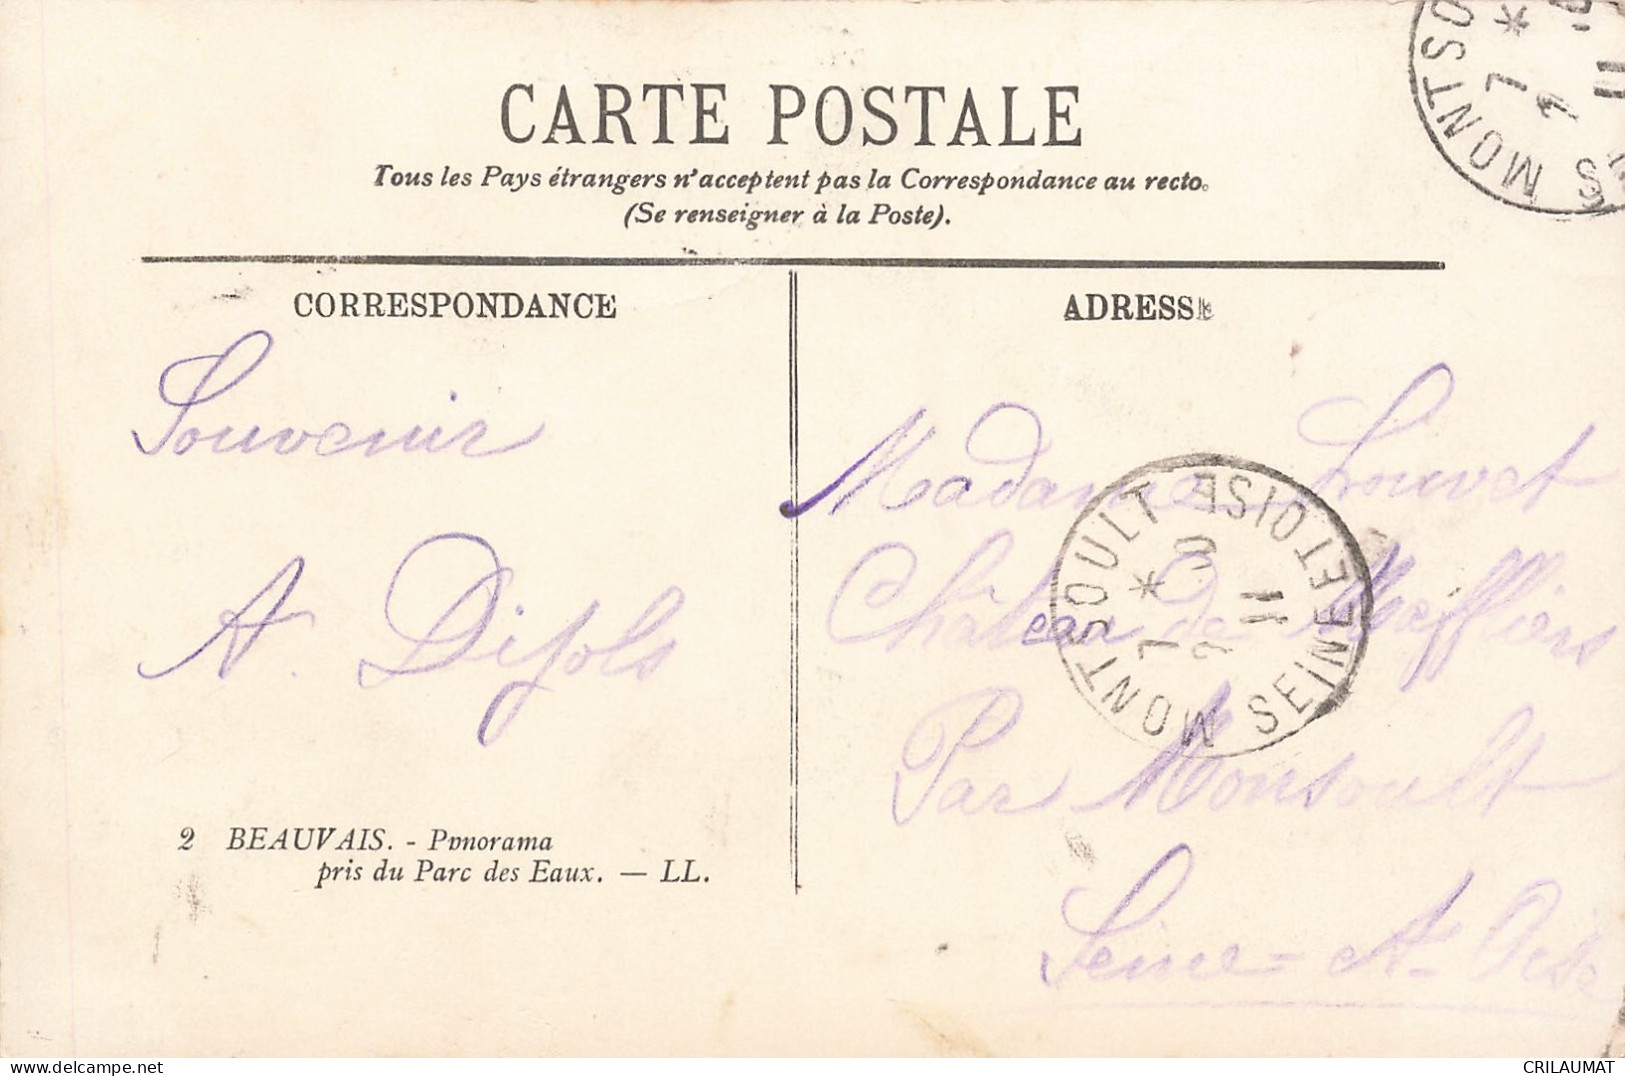 CARTE POSTALE
Tous les Pays étrangers n'acceptent pas la Correspondance au recto.
(Se renseigner à la Poste).
CORRESPONDANCE
ADRESSE
Souvenir
A. Difols
Madame Louvet
Château de Maffliers
Par Monsoult
Seine-et-Oise
2 BEAUVAIS. - Panorama
pris du Parc des Eaux. — LL.
MONTSOULT SEINE ET OISE
7 * 10
2
11
MONTSO
7 *
2
11
delcampe.net
CRILAUMAT